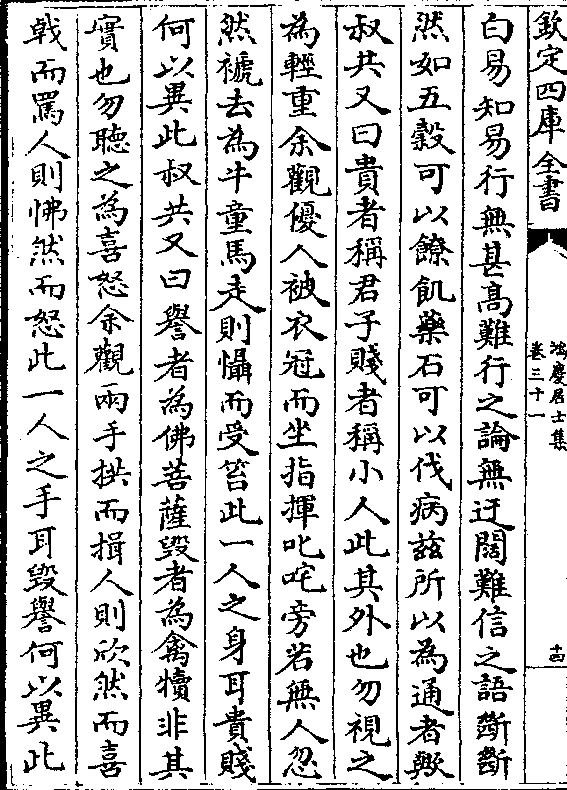 欽定四庫全書
鴻慶居士集
卷三十一
十四
白易知易行無甚高難行之論無迂闊難信之語斷斷
然如五穀可以療飢藥石可以伐病茲所以為通者歟
叔共又曰貴者稱君子賤者稱小人此其外也勿視之
為輕重余觀優人被衣冠而坐指揮叱咤旁若無人忽
然褫去為牛童馬走則懾而受笞此一人之身耳貴賤
何以異此叔共又曰譽者為佛菩薩毀者為禽犢非其
實也勿聽之為喜怒余觀兩手拱而揖人則欣然而喜
戟而罵人則怫然而怒此一人之手耳毀譽何以異此